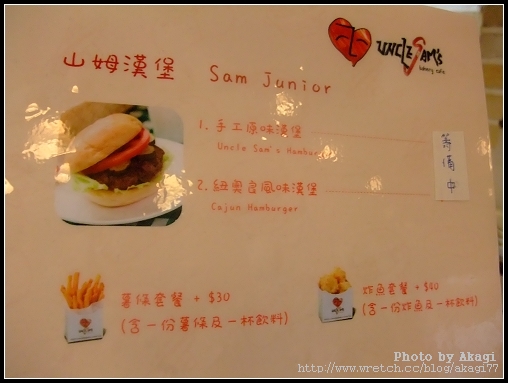 UNCLE SAM'S
山姆漢堡 Sam Junior
1. 手工原味漢堡
Uncle Sam's Hamburger
2. 紐奧良風味漢堡
Cajun Hamburger
籌備中
薯條套餐 + $30
(含一份薯條及一杯飲料)
炸魚套餐 + $40
(含一份炸魚及一杯飲料)
Photo by Akagi
http://www.wretch.cc/blog/akagi77